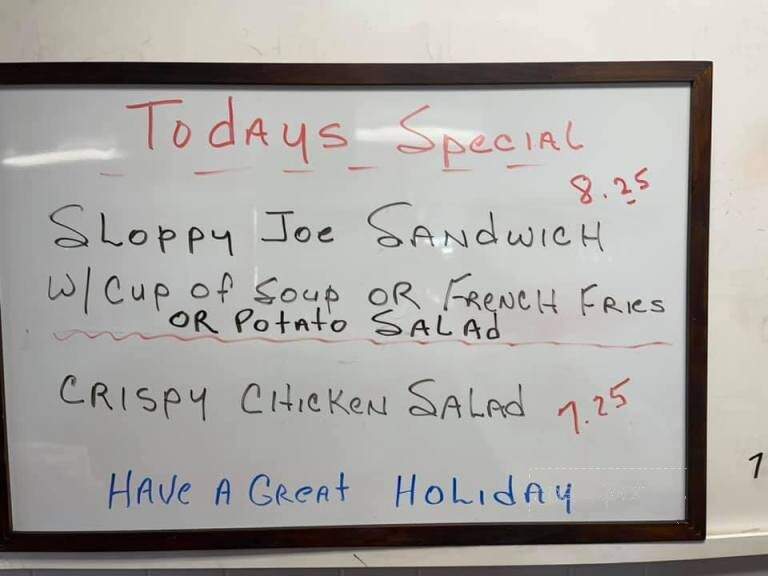 TodAys Special
8.25
Sloppy Joe SANdwicH
W/ Cup of Soup OR FRENCH FRies
OR Potato SALAd
CRispy CHicKeN SALAd 7.25
HAVe A GReAt HoLidAy
7